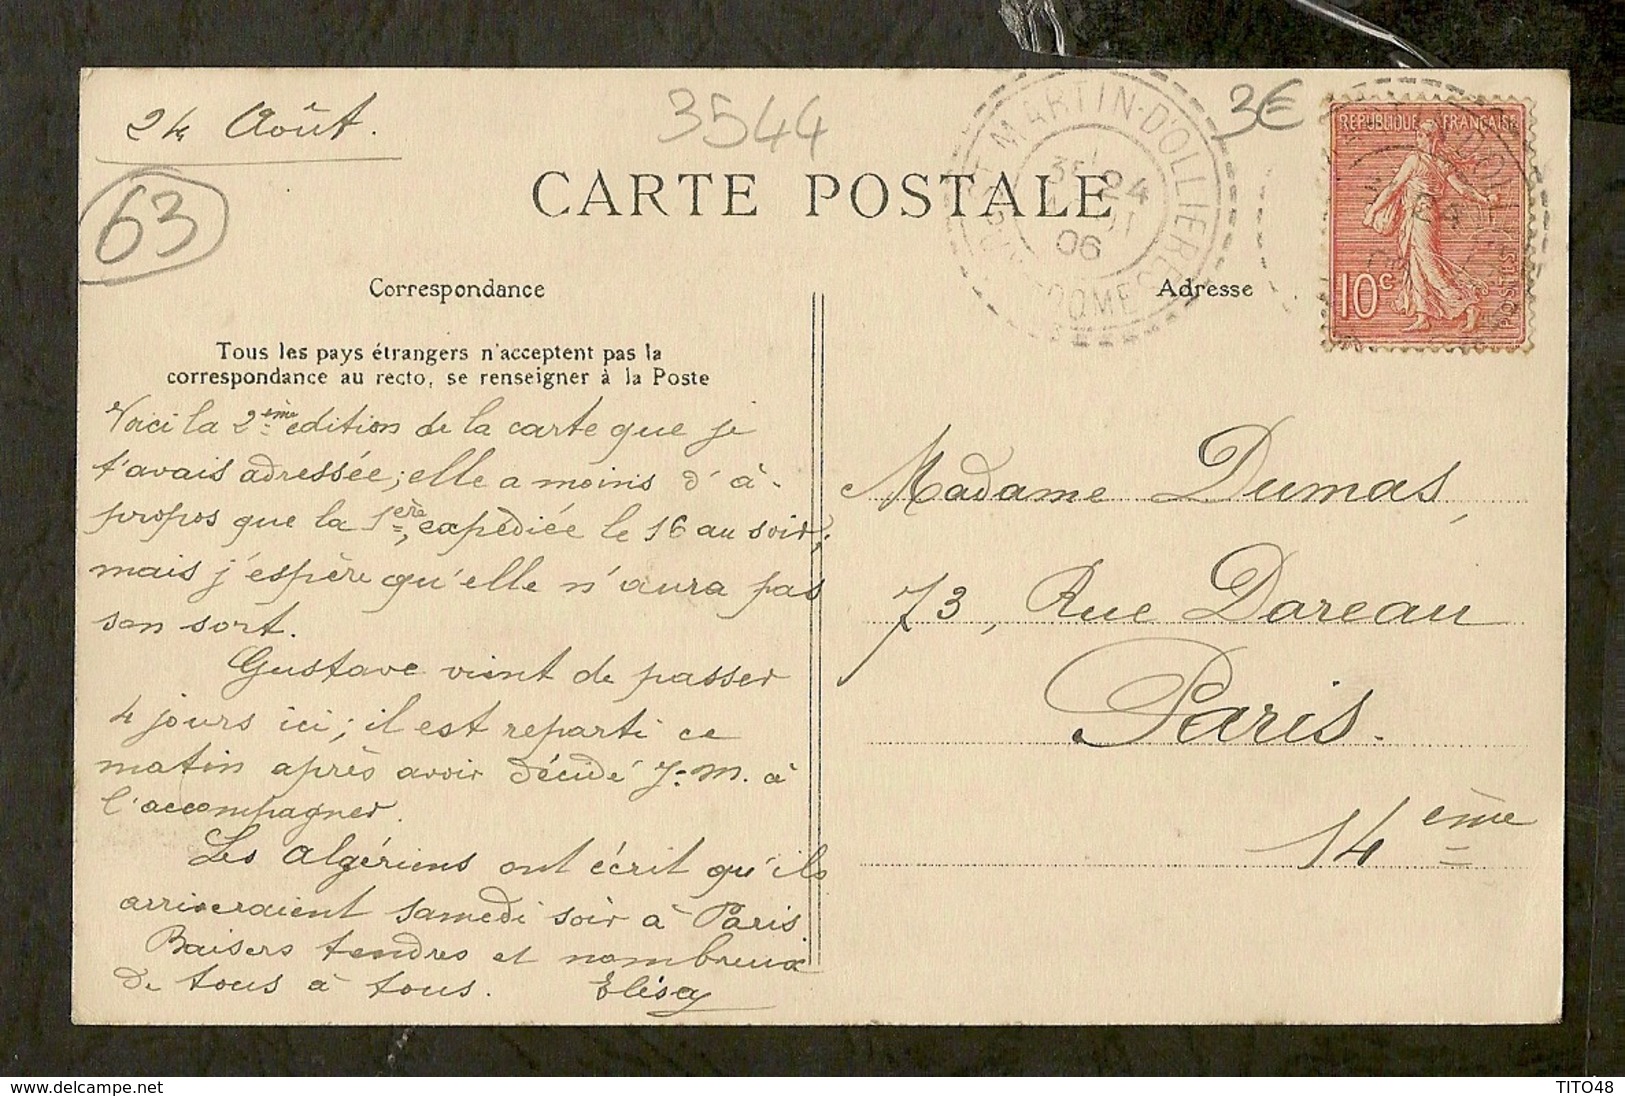 24 Août.
3544
3€
63
CARTE POSTALE
ST MARTIN-D'OLLIERES
PUY-DE-DOME
24
06
REPUBLIQUE FRANÇAISE
10c
POSTES
Correspondance
Adresse
Tous les pays étrangers n'acceptent pas la
correspondance au recto, se renseigner à la Poste
Voici la 2ème edition de la carte que je
t'avais adressée; elle a moins d'à-
propos que la 1ère, expédiée le 16 au soir;
mais j'espère qu'elle n'aura pas
son sort.
Gustave vient de passer
4 jours ici; il est reparti ce
matin après avoir décidé J-M. à
l'accompagner.
Les algériens ont écrit qu'ils
arriveraient samedi soir à Paris.
Baisers tendres et nombreux
de tous à tous. Elisa
Madame Dumas,
73, Rue Dareau
Paris.
14ème
delcampe.net
TITO48